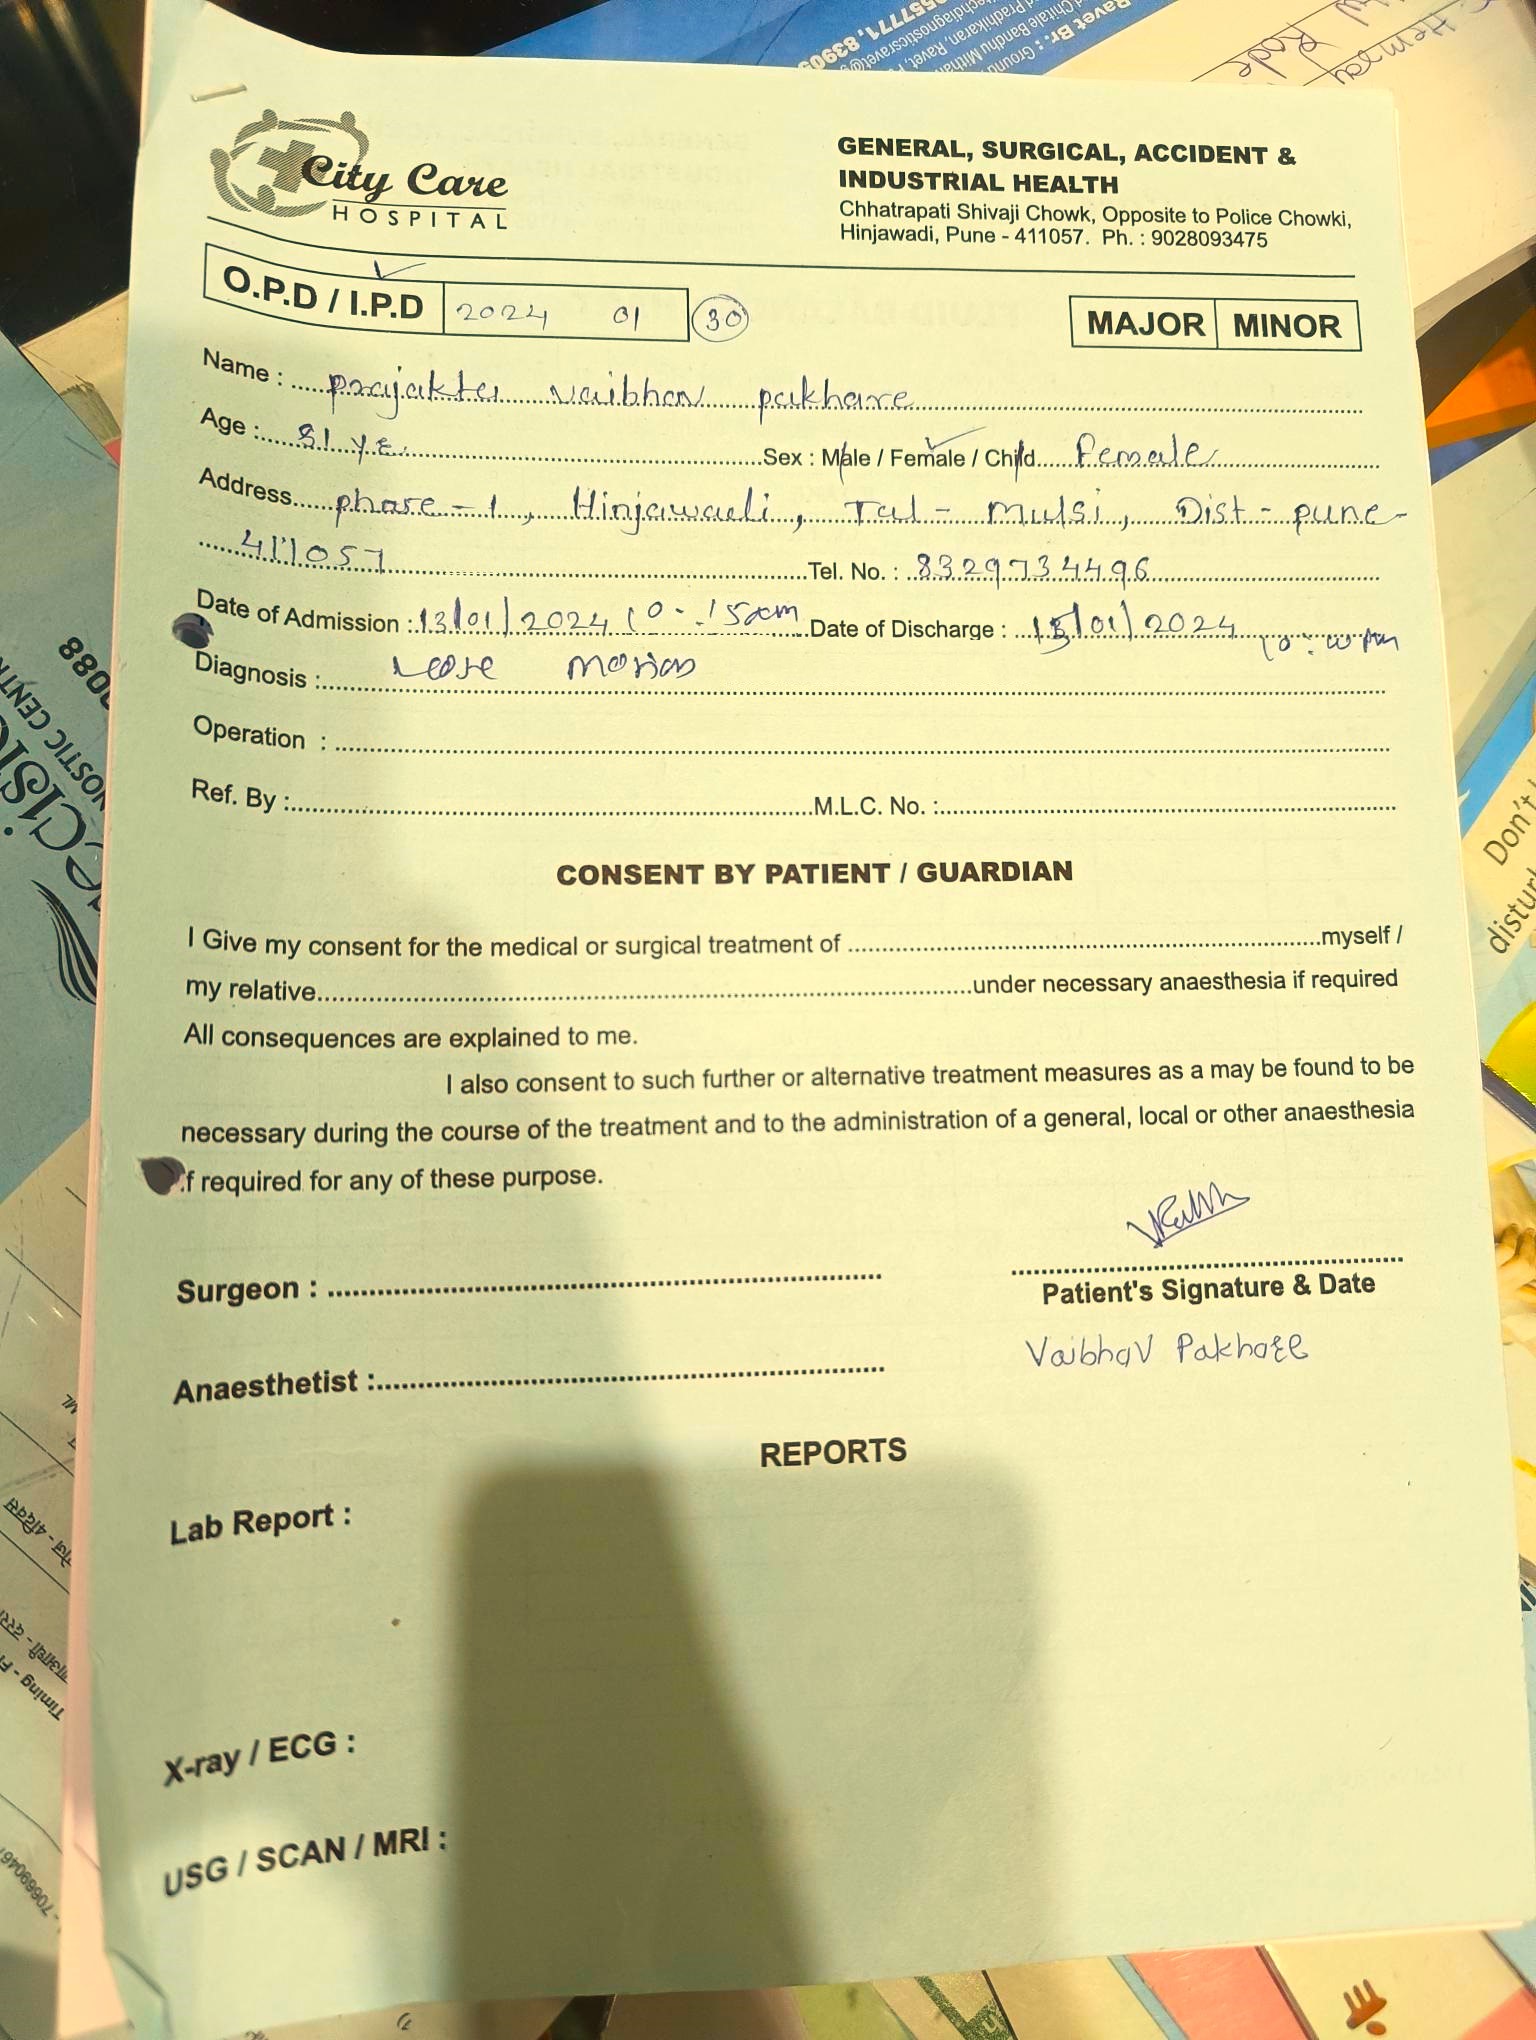 City Care
HOSPITAL
GENERAL, SURGICAL, ACCIDENT &
INDUSTRIAL HEALTH
Chhatrapati Shivaji Chowk, Opposite to Police Chowki,
Hinjawadi, Pune - 411057. Ph. : 9028093475
O.P.D / I.P.D 2024 01 30
MAJOR MINOR
Name : prajakta vaibhav pakhare
Age : 31 yr. Sex : Male / Female / Child Female
Address phase - 1, Hinjawadi, Tal - Mulsi, Dist - pune -
411057 Tel. No. : 8329734496
Date of Admission : 13/01/2024 10 : 15am Date of Discharge : 15/01/2024 10:00 Am
Diagnosis : Loose motion
Operation :
Ref. By : M.L.C. No. :
CONSENT BY PATIENT / GUARDIAN
I Give my consent for the medical or surgical treatment of myself /
my relative under necessary anaesthesia if required
All consequences are explained to me.
I also consent to such further or alternative treatment measures as a may be found to be
necessary during the course of the treatment and to the administration of a general, local or other anaesthesia
if required for any of these purpose.
Surgeon :
Patient's Signature & Date
Vaibhav Pakhare
Anaesthetist :
REPORTS
Lab Report :
X-ray / ECG :
USG / SCAN / MRI :